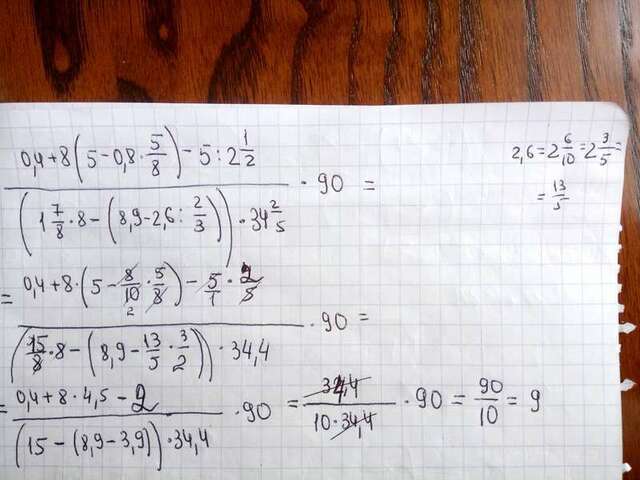 (0,4+8(5-0,8·5/8)-5:2 1/2)/((1 7/8·8-(8,9-2,6:2/3))·34 2/5) · 90 =
2,6=2 6/10=2 3/5=
=13/5
=(0,4+8·(5-8/10·5/8)-5/1·2/5)/((15/8·8-(8,9-13/5·3/2))·34,4) · 90 =
=(0,4+8·4,5-2)/((15-(8,9-3,9))·34,4) · 90 = 34,4/(10·34,4) · 90 = 90/10 = 9